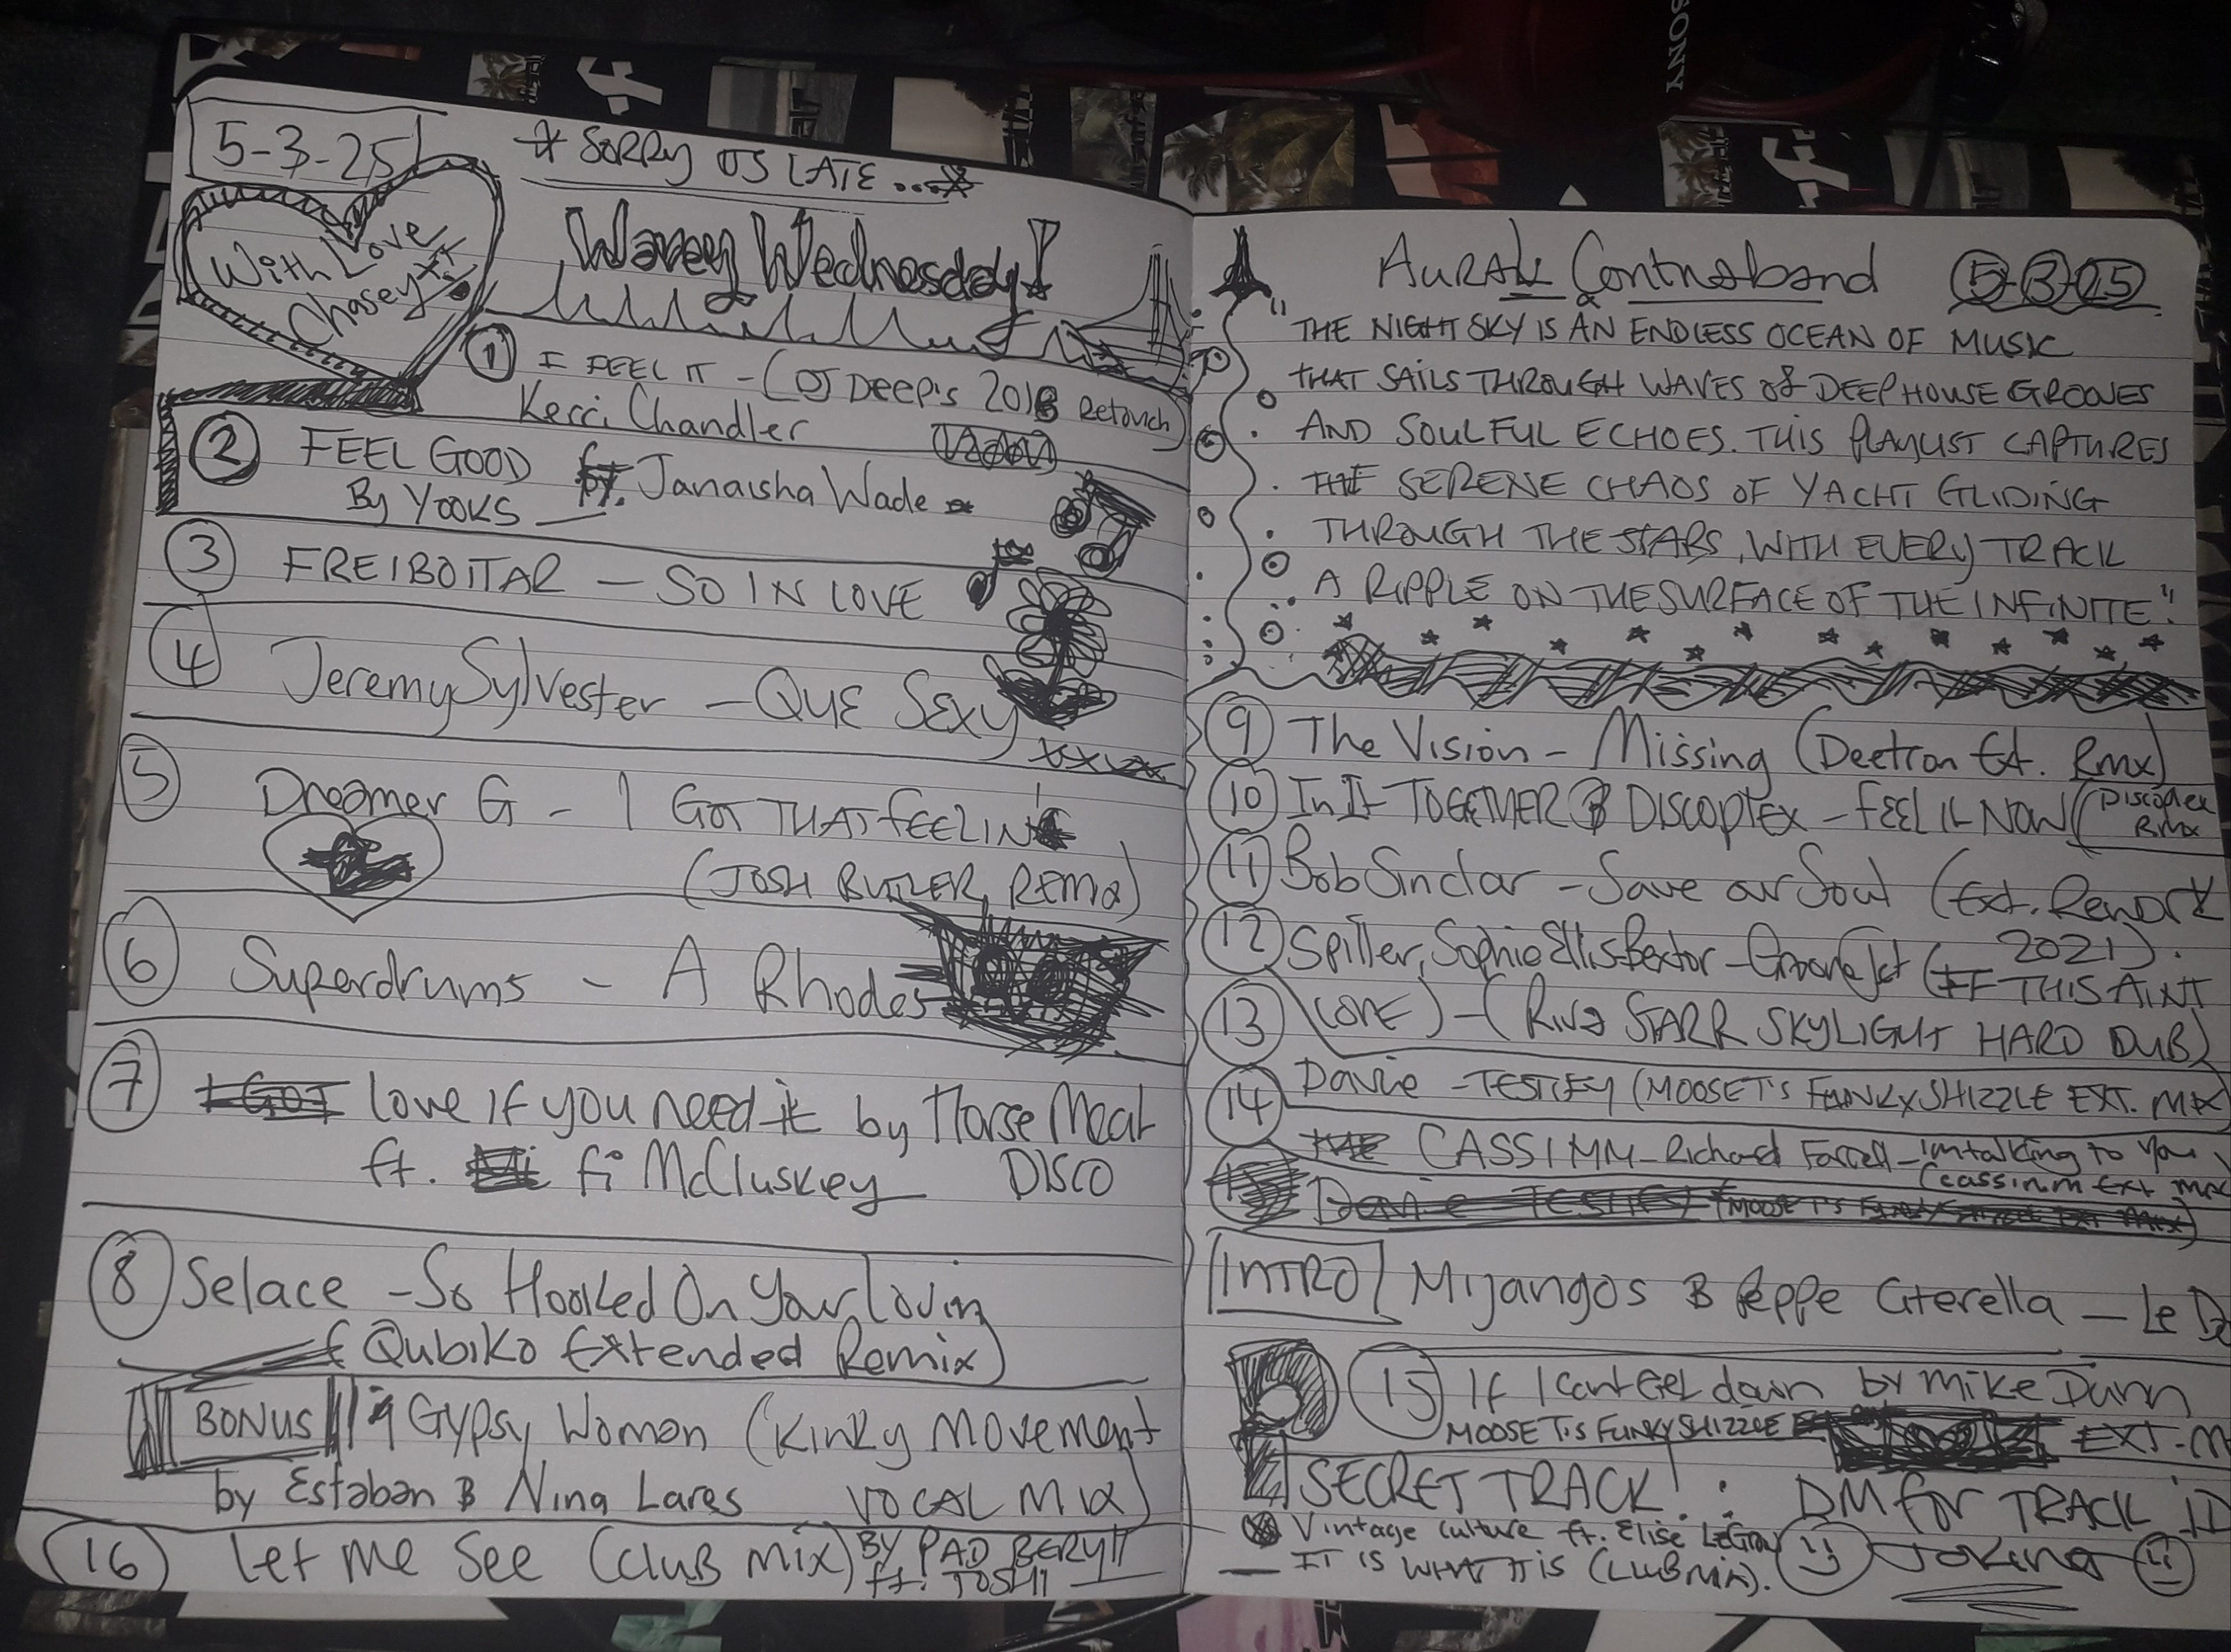 SONY
5-3-25
* SORRY ITS LATE ...*
With Love
Chasey xx
Wavey Wednesday!
1 I FEEL IT - (DJ DEEP'S 2018 Retouch)
Kerri Chandler
2 FEEL GOOD ft. Janaisha Wade
By YOOKS
3 FREIBOITAR - SO IN LOVE
4 Jeremy Sylvester - QUE SEXY
xxxx
5 Dreamer G - I GOT THAT FEELIN'
(JOSH BUTLER REMIX)
6 Superdrums - A Rhodes
7 I GOT love if you need it by Horse Meat
ft. fi McCluskey DISCO
8 Selace - So Hooked On Your Lovin
(Qubiko Extended Remix)
BONUS Gypsy Woman (Kinky Movement
by Estaban & Nina Lares VOCAL MIX)
16 Let me See (CLUB MIX) BY PAD BERYLL
ft. TOSHI
AURAL Contraband 5-3-25
"THE NIGHT SKY IS AN ENDLESS OCEAN OF MUSIC
THAT SAILS THROUGH WAVES of DEEP HOUSE GROOVES
AND SOULFUL ECHOES. THIS PLAYLIST CAPTURES
THE SERENE CHAOS OF YACHT GLIDING
THROUGH THE STARS, WITH EVERY TRACK
A RIPPLE ON THE SURFACE OF THE INFINITE".
9 The Vision - Missing (Deetron Ext. Rmx)
10 In It TOGETHER & DISCOPLEX - FEEL IT NOW (Discoplex
Rmx
11 Bob Sinclar - Save our Soul (Ext. Rework
2021).
12 Spiller, Sophie Ellis-Bextor - Groovejet (IF THIS AINT
13 LOVE) - (RIVA STARR SKYLIGHT HARD DUB)
14 Davie - TESTIFY (MOOSE T'S FUNKY SHIZZLE EXT. MIX)
THE CASSIMM - Richard Farrell - im talking to you
(cassimm Ext mix
Davie TESTIFY (MOOSE T'S FUNKY SHIZZLE EXT MIX)
INTRO Mijangos & Peppe Citerella - Le
15 If I Cant Get down by Mike Dunn
MOOSE T'S FUNKY SHIZZLE EXT. M
SECRET TRACK! : DM for TRACK iD
Vintage culture ft. Elise LeGrow Joking
- IT IS WHAT IT IS (CLUB MIX).